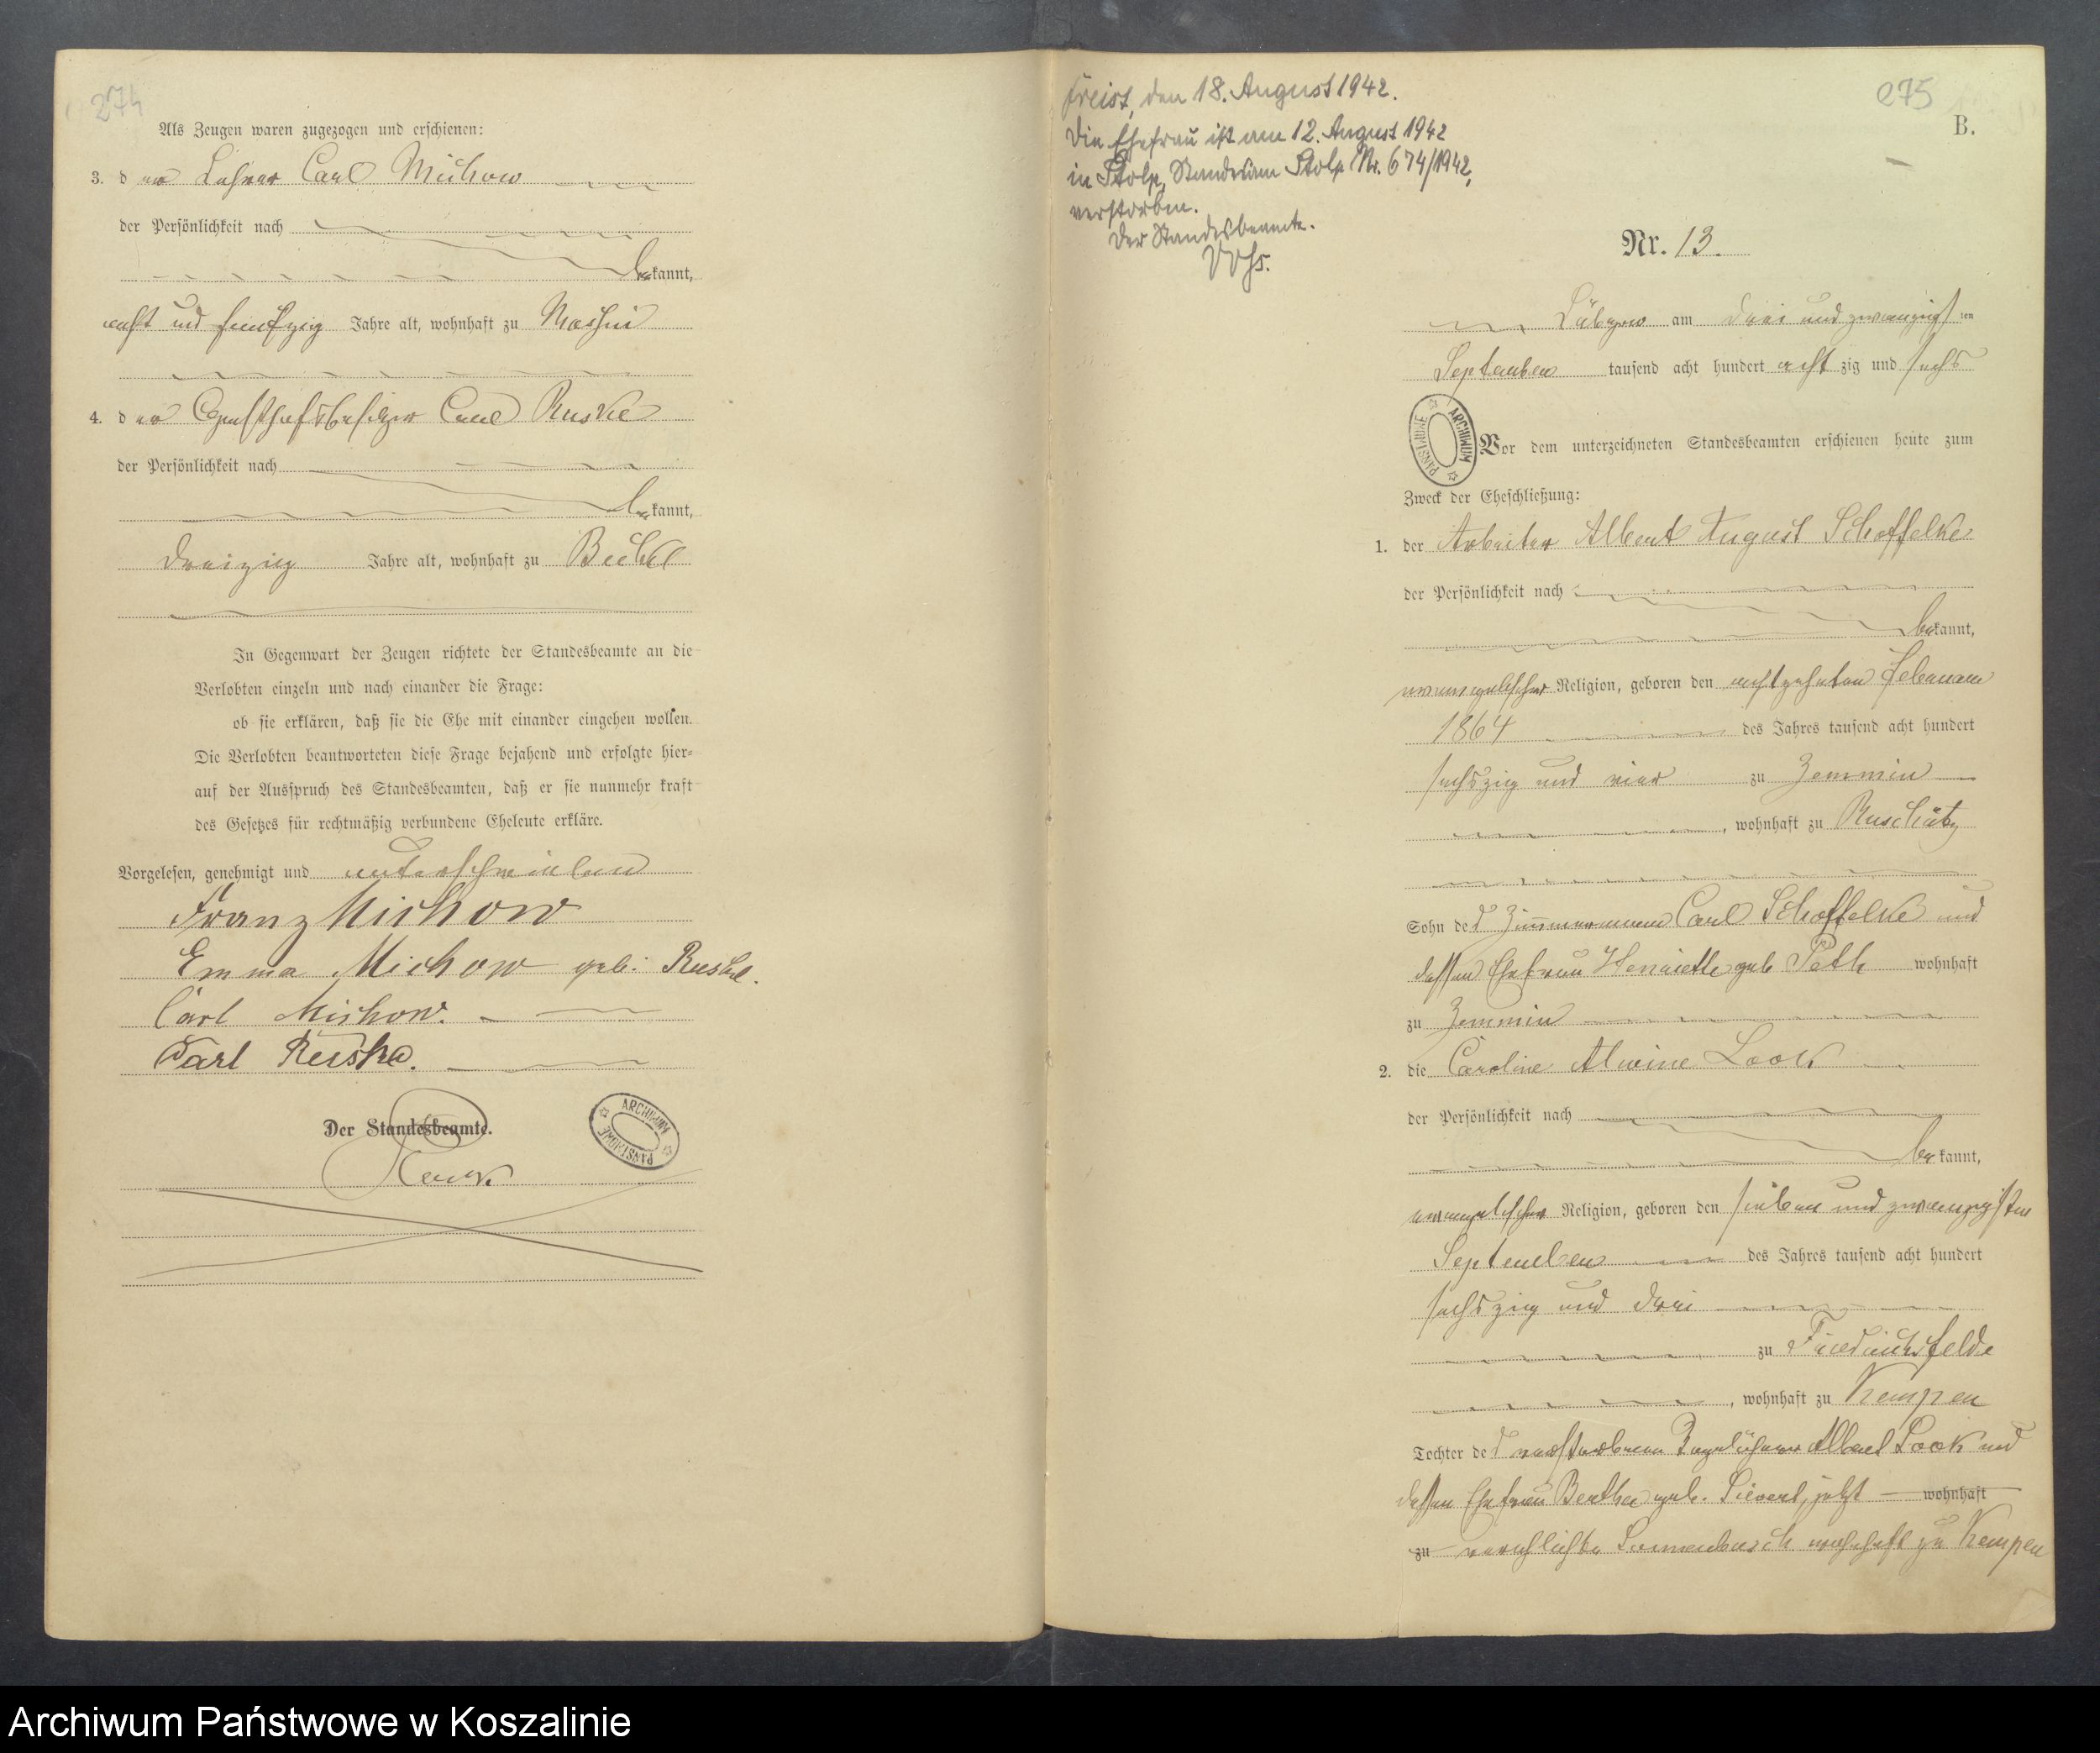 274
Als Zeugen waren zugezogen und erschienen:
3. der Lehrer Carl Mischow
der Persönlichkeit nach
bekannt,
acht und fünfzig Jahre alt, wohnhaft zu
4. der Gasthofsbesitzer Carl Ruske
der Persönlichkeit nach
bekannt,
dreizig Jahre alt, wohnhaft zu
In Gegenwart der Zeugen richtete der Standesbeamte an die
Verlobten einzeln und nach einander die Frage:
ob sie erklären, daß sie die Ehe mit einander eingehen wollen.
Die Verlobten beantworteten diese Frage bejahend und erfolgte hier-
auf der Ausspruch des Standesbeamten, daß er sie nunmehr kraft
des Gesetzes für rechtmäßig verbundene Eheleute erkläre.
Vorgelesen, genehmigt und unterschrieben
Franz Mischow
Emma Mischow geb: Ruske.
Carl Mischow.
Karl Ruske.
Der Standesbeamte.
ARCHIWUM PAŃSTWOWE
Freist, den 18. August 1942.
Die Ehefrau ist am 12. August 1942
in Stolp, Standesam Stolp Nr. 674/1942,
verstorben.
Der Standesbeamte.
275
B.
Nr. 13.
Lübzow am drei und zwanzigsten
September tausend acht hundert acht zig und sechs
ARCHIWUM PAŃSTWOWE
Vor dem unterzeichneten Standesbeamten erschienen heute zum
Zweck der Eheschließung:
1. der Arbeiter Albert August Schoffelke
der Persönlichkeit nach
bekannt,
evangelischer Religion, geboren den achtzehnten Februar
1864 des Jahres tausend acht hundert
sechszig und vier zu Zemmin
, wohnhaft zu Ruschütz
Sohn des Zimmermann Carl Schoffelke und
dessen Ehefrau Henriette geb Peth wohnhaft
zu Zemmin
2. die Caroline Alwine Look
der Persönlichkeit nach
bekannt,
evangelischer Religion, geboren den sieben und zwanzigsten
September des Jahres tausend acht hundert
sechszig und drei
zu Friedrichsfelde
, wohnhaft zu Kempen
Tochter des verstorbenen Tagelöhner Albert Look und
dessen Ehefrau Bertha geb. Sievert, jetzt wohnhaft
zu verehlichte wohnhaft zu Kempen
Archiwum Państwowe w Koszalinie